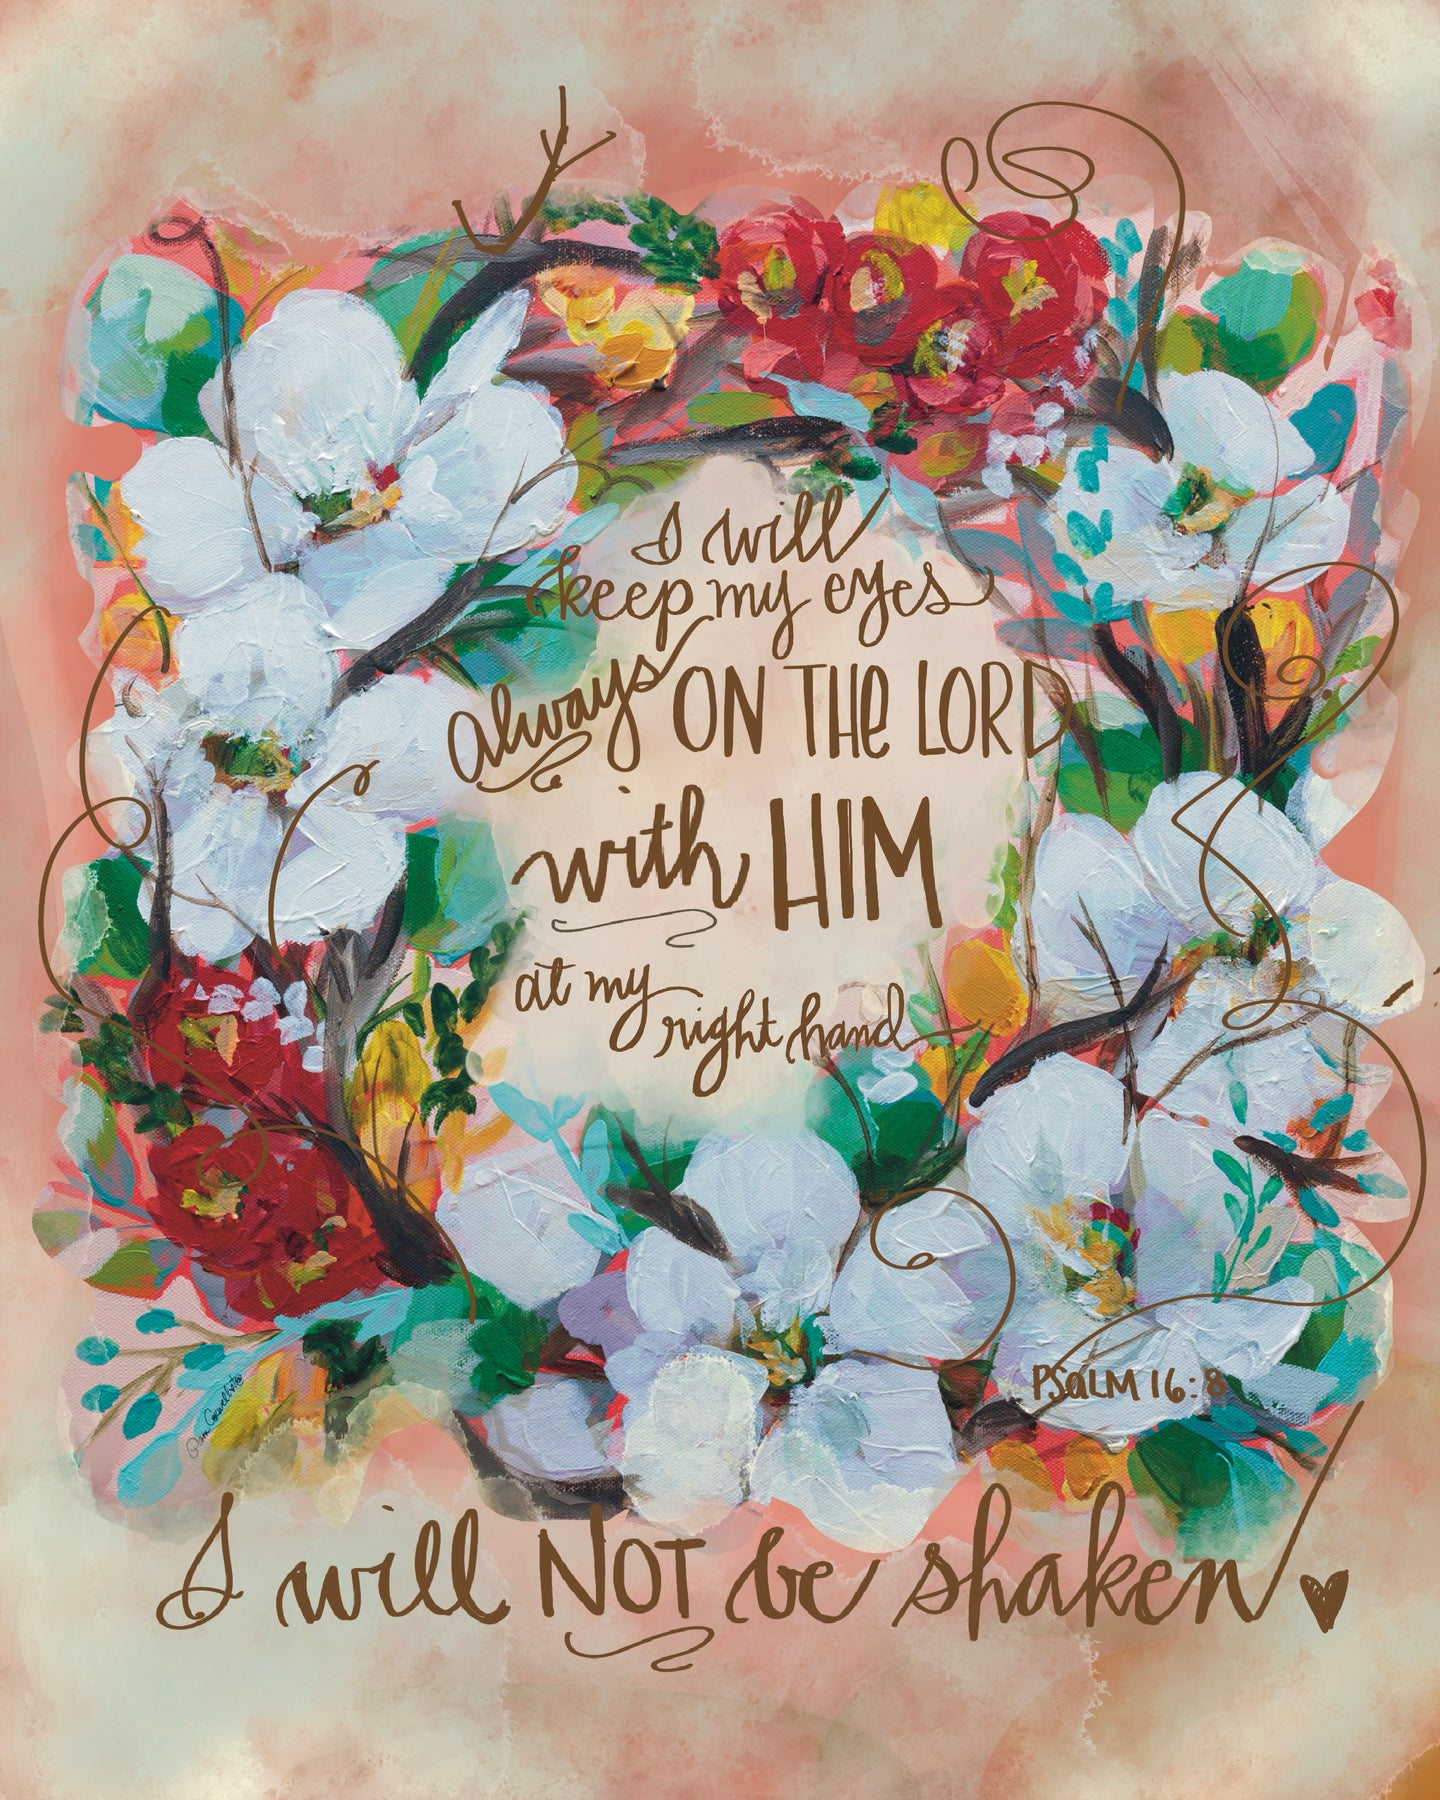 I will
keep my eyes
always ON THE LORD
with HIM
at my
right hand
PSALM 16:8
I will NOT be shaken